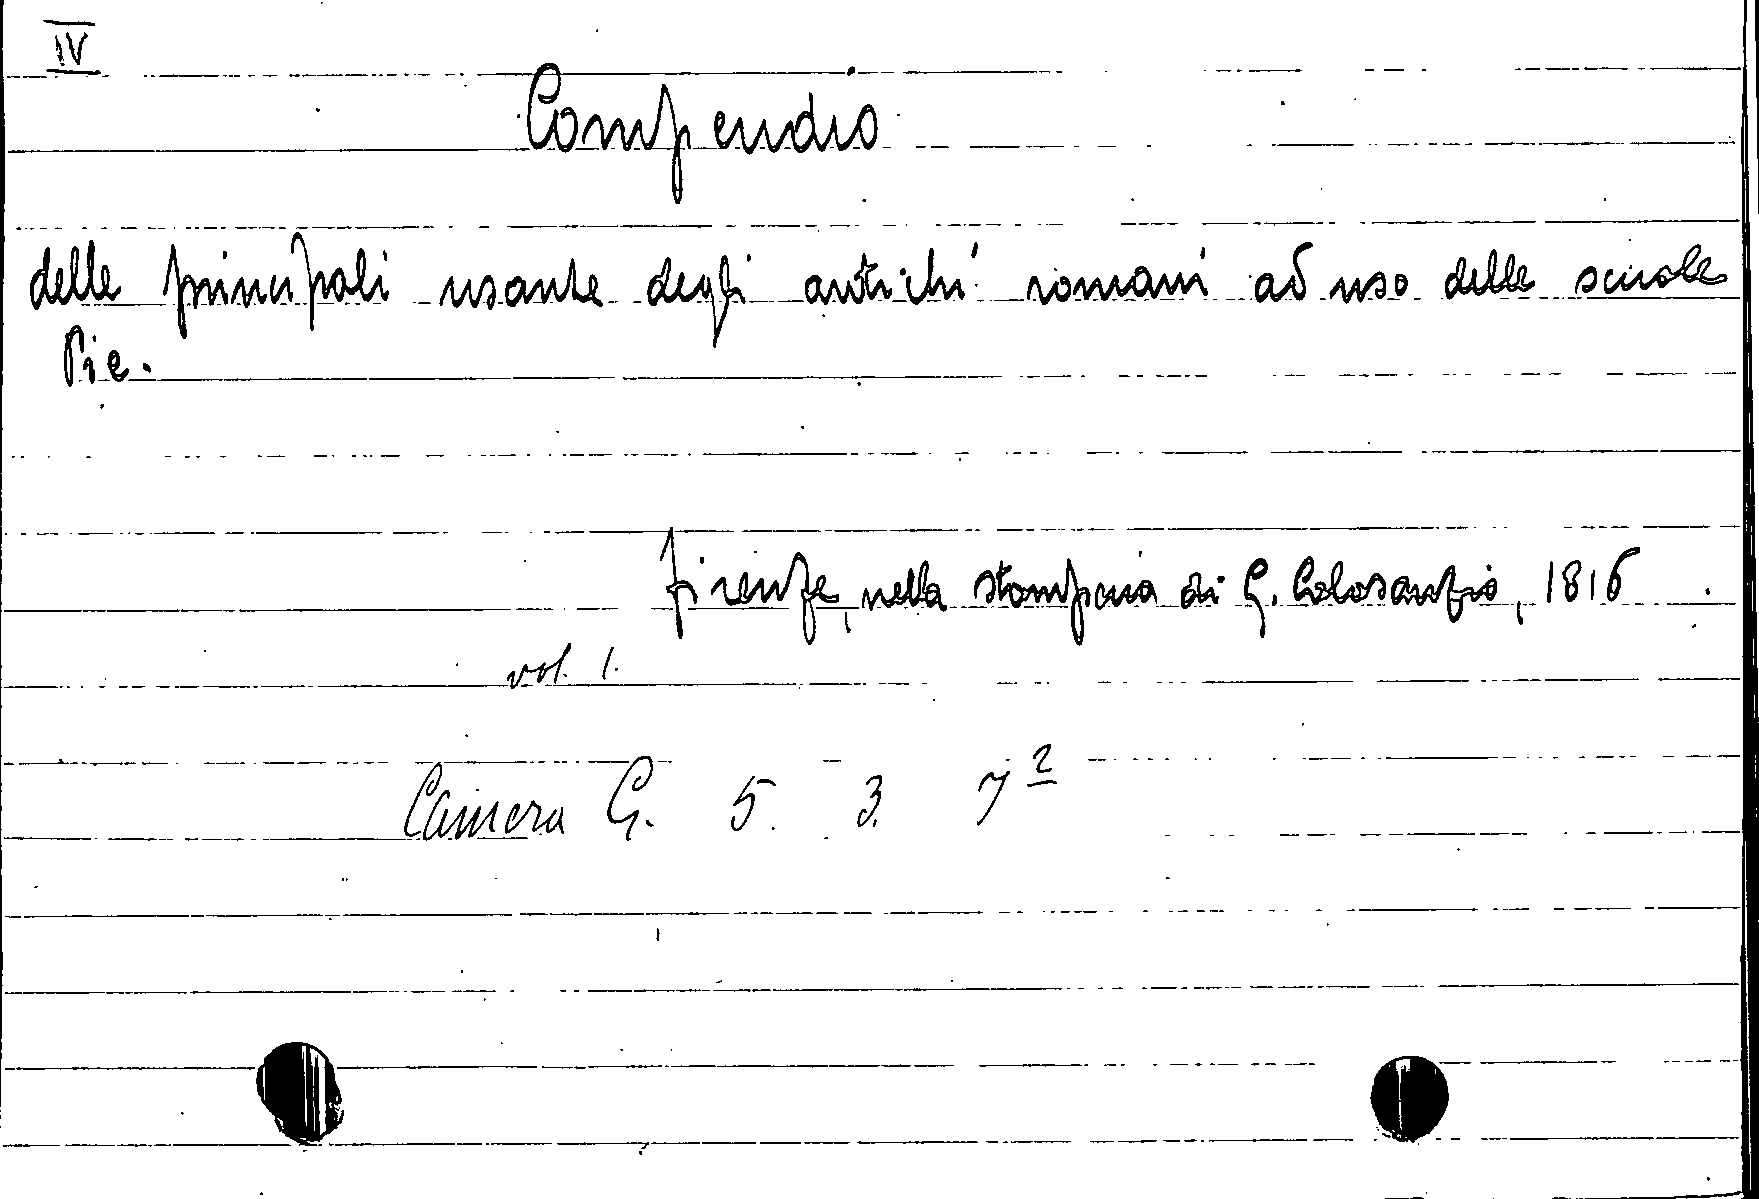 IV
Compendio
delle principali usanze degli antichi romani ad uso delle scuole
Pie.
Firenze, nella stamperia di G. Colosanzio, 1816
vol. 1.
Camera G. 5. 3. 7²